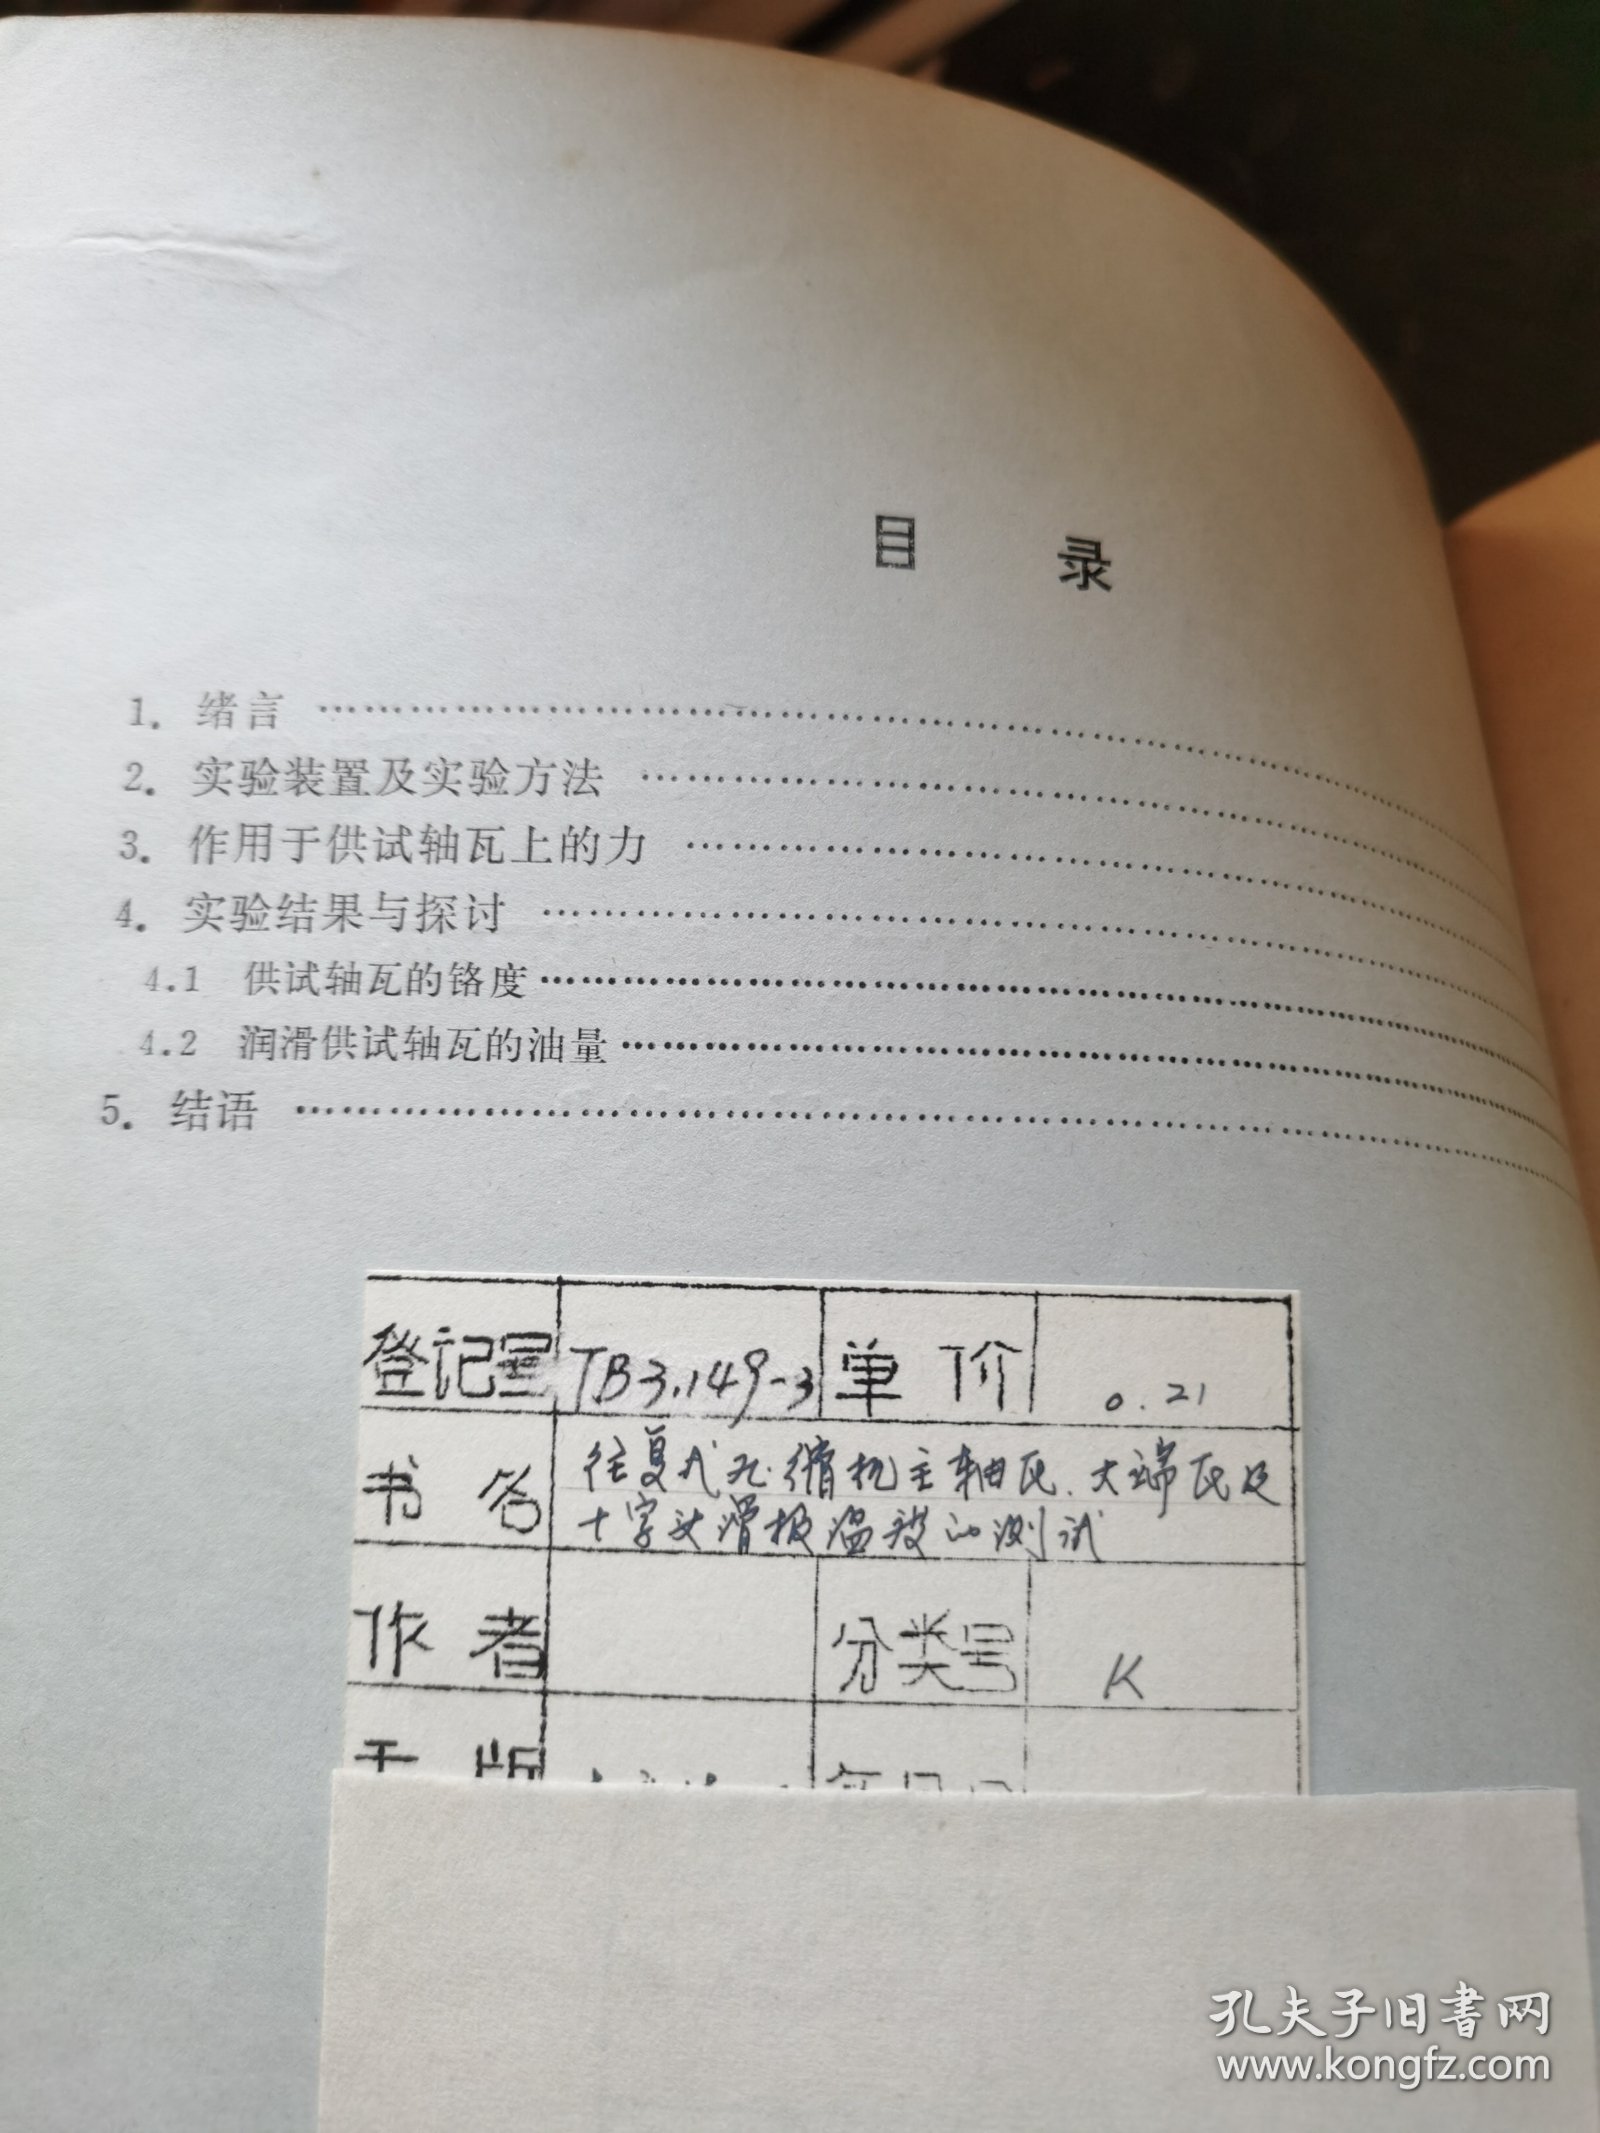 目 录
1. 绪言 ……………………………………
2. 实验装置及实验方法 ……………………………………
3. 作用于供试轴瓦上的力 ……………………………………
4. 实验结果与探讨 ……………………………………
4.1 供试轴瓦的铬度……………………………………
4.2 润滑供试轴瓦的油量……………………………………
5. 结语 ……………………………………
登记号 TB3.149-3 单价 0.21
书名 往复式压缩机主轴瓦、大端瓦及
十字头滑板温度的测试
作者 分类号 K
孔夫子旧书网
www.kongfz.com